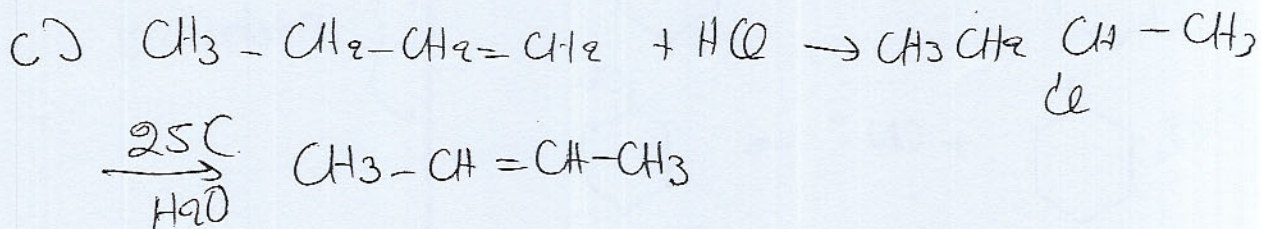 c) CH3 - CH2-CH2=CH2 + HCl → CH3 CH2 CH - CH3
Cl
25C
→ CH3-CH=CH-CH3
H2O